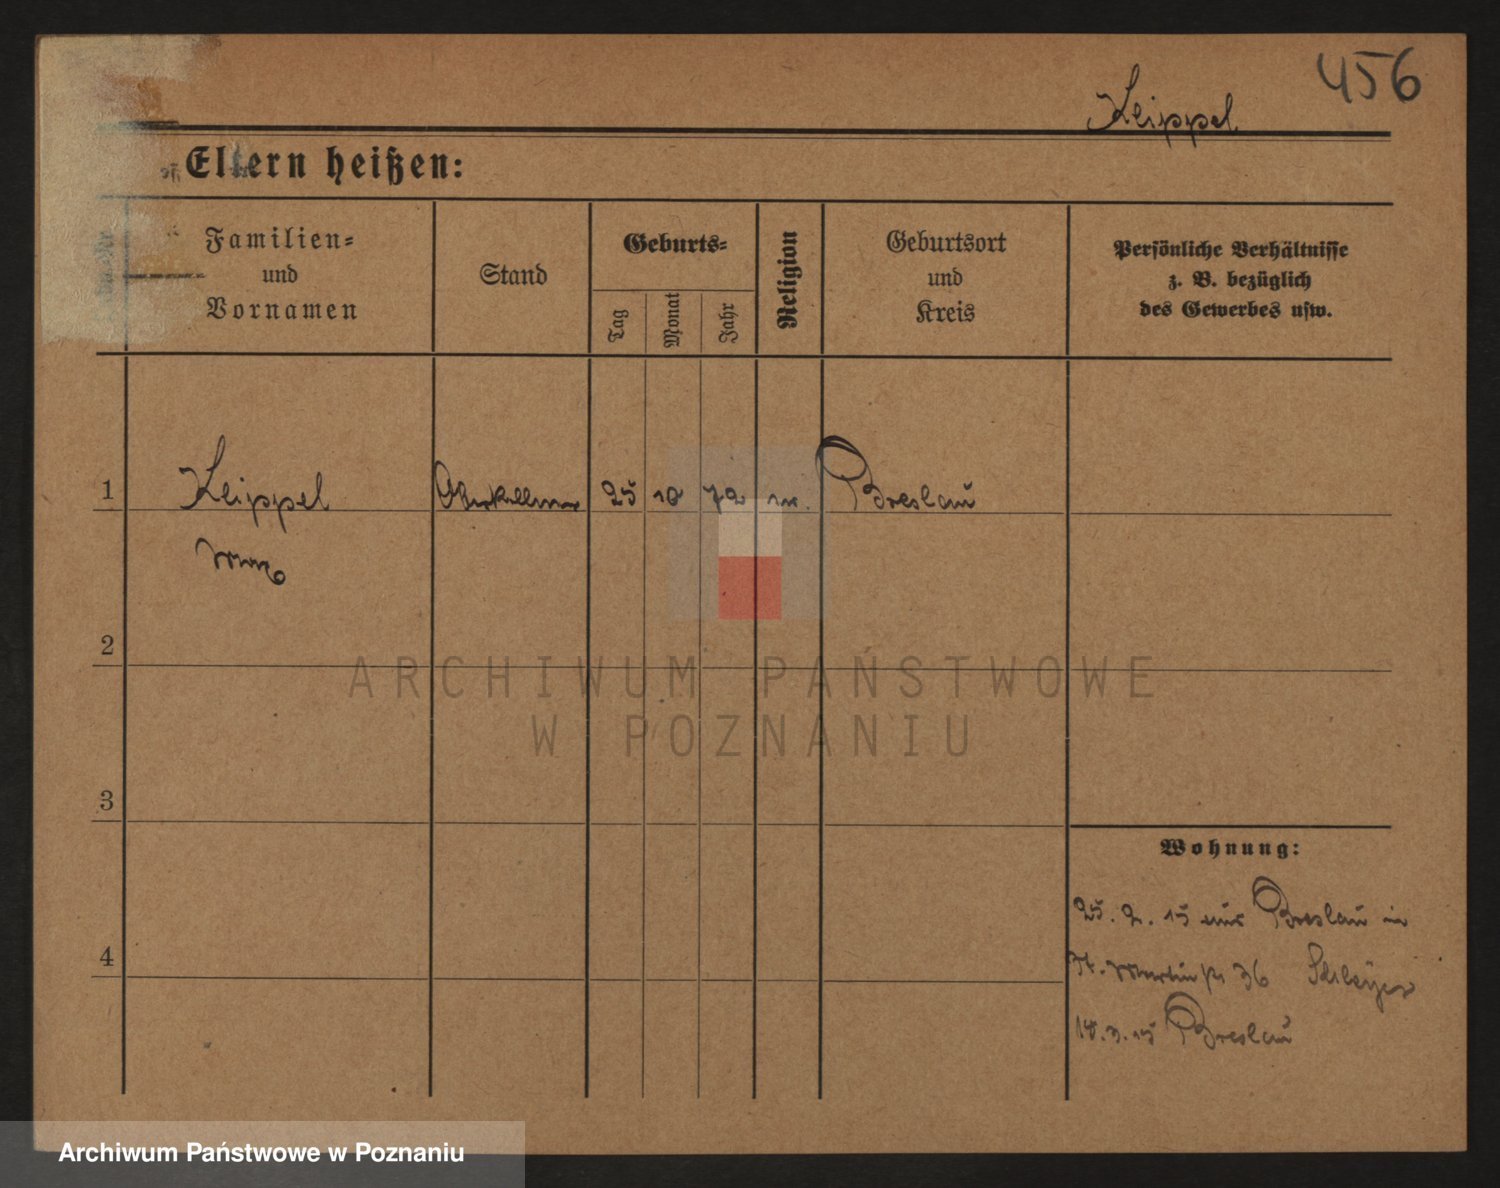 456
Keippel
Eltern heißen:
Familien=
und
Vornamen
Stand
Geburts=
Tag
Monat
Jahr
Religion
Geburtsort
und
Kreis
Persönliche Verhältnisse
z. B. bezüglich
des Gewerbes usw.
1 Keippel Oberkellner 25 10 72 Breslau
Max
2
ARCHIWUM PAŃSTWOWE
W POZNANIU
3
Wohnung:
25. 2. 15 aus Breslau in
St. Martinstr 36
3. 15 Breslau
4
Archiwum Państwowe w Poznaniu